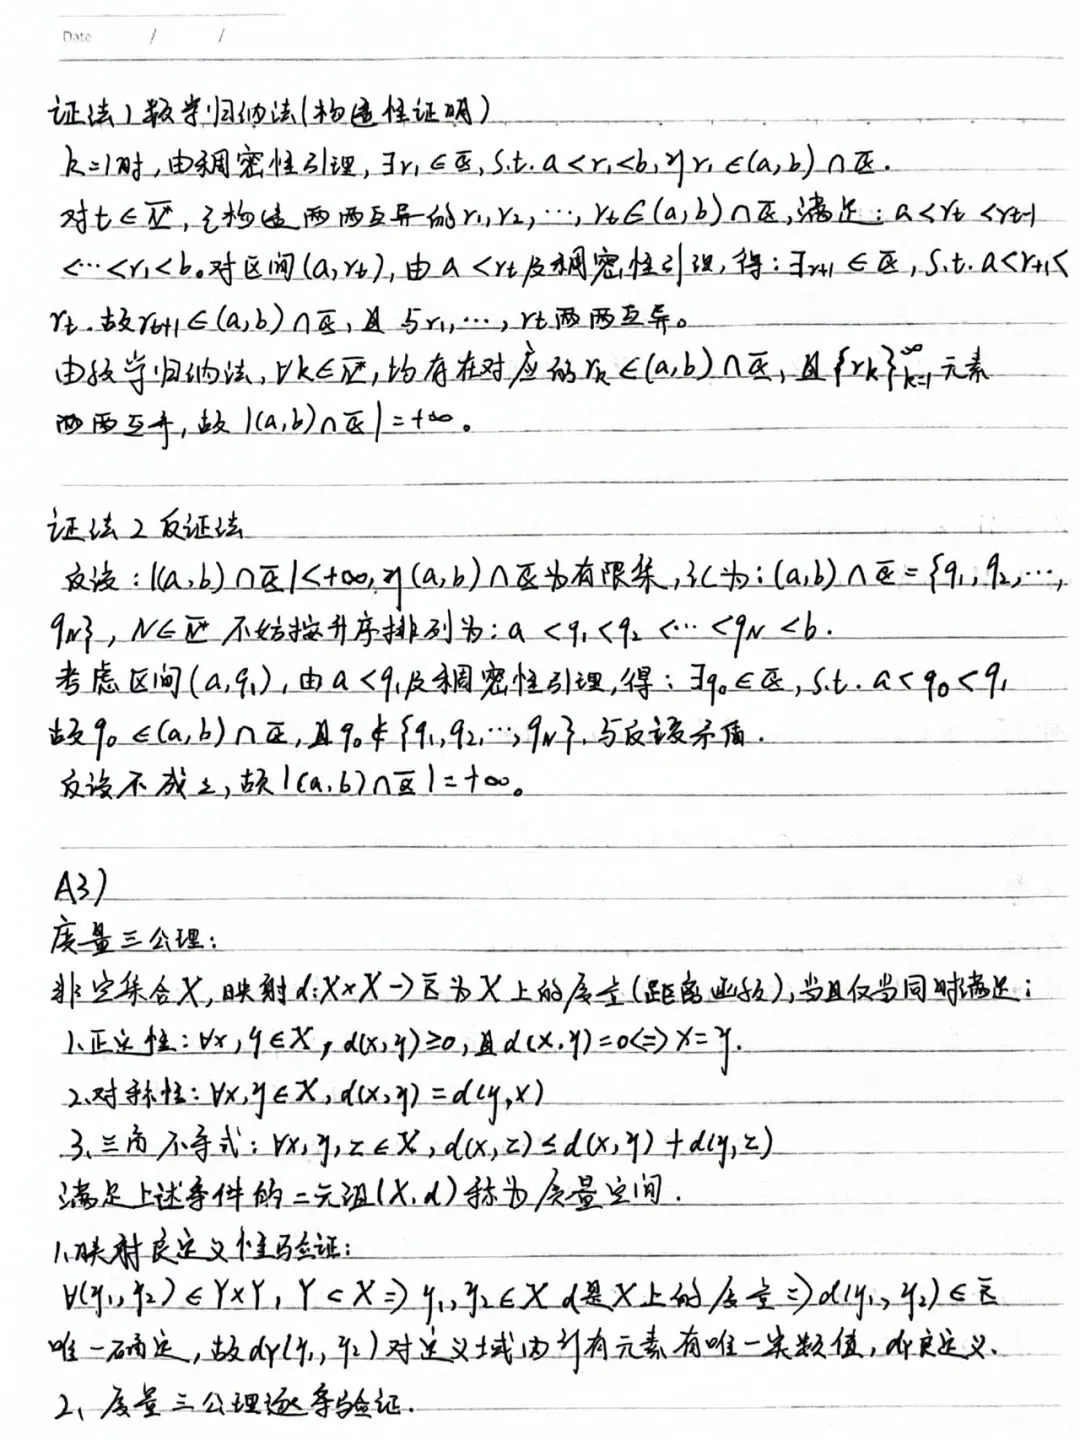 Date / /
证法1 数学归纳法(构造性证明)
k=1时,由稠密性引理,∃r₁∈ℚ,s.t. a<r₁<b,则r₁∈(a,b)∩ℚ.
对t∈ℕ*,已构造两两互异的r₁,r₂,…,rₜ∈(a,b)∩ℚ,满足:a<rₜ<rₜ₋₁
<…<r₁<b。对区间(a,rₜ),由a<rₜ及稠密性引理,得:∃rₜ₊₁∈ℚ,s.t. a<rₜ₊₁<
rₜ.故rₜ₊₁∈(a,b)∩ℚ,且与r₁,…,rₜ两两互异。
由数学归纳法,∀k∈ℕ*,均存在对应的rₖ∈(a,b)∩ℚ,且{rₖ}_{k=1}^∞元素
两两互异,故|(a,b)∩ℚ|=+∞。
证法2 反证法
反设:|(a,b)∩ℚ|<+∞,则(a,b)∩ℚ为有限集,记为:(a,b)∩ℚ={q₁,q₂,…,
q_N},N∈ℕ* 不妨按升序排列为:a<q₁<q₂<…<q_N<b.
考虑区间(a,q₁),由a<q₁及稠密性引理,得:∃q₀∈ℚ,s.t. a<q₀<q₁
故q₀∈(a,b)∩ℚ,且q₀∉{q₁,q₂,…,q_N},与反设矛盾.
反设不成立,故|(a,b)∩ℚ|=+∞。
A3)
度量三公理:
非空集合X,映射d:X×X→ℝ为X上的度量(距离函数),当且仅当同时满足:
1.正定性:∀x,y∈X,d(x,y)≥0,且d(x,y)=0⇔x=y.
2.对称性:∀x,y∈X,d(x,y)=d(y,x)
3.三角不等式:∀x,y,z∈X,d(x,z)≤d(x,y)+d(y,z)
满足上述条件的二元组(X,d)称为度量空间.
1.映射良定义性验证:
∀(y₁,y₂)∈Y×Y,Y⊂X⇒y₁,y₂∈X d是X上的度量⇒d(y₁,y₂)∈ℝ
唯一确定,故d_Y(y₁,y₂)对定义域内所有元素有唯一实数值,d_Y良定义.
2、度量三公理逐条验证.